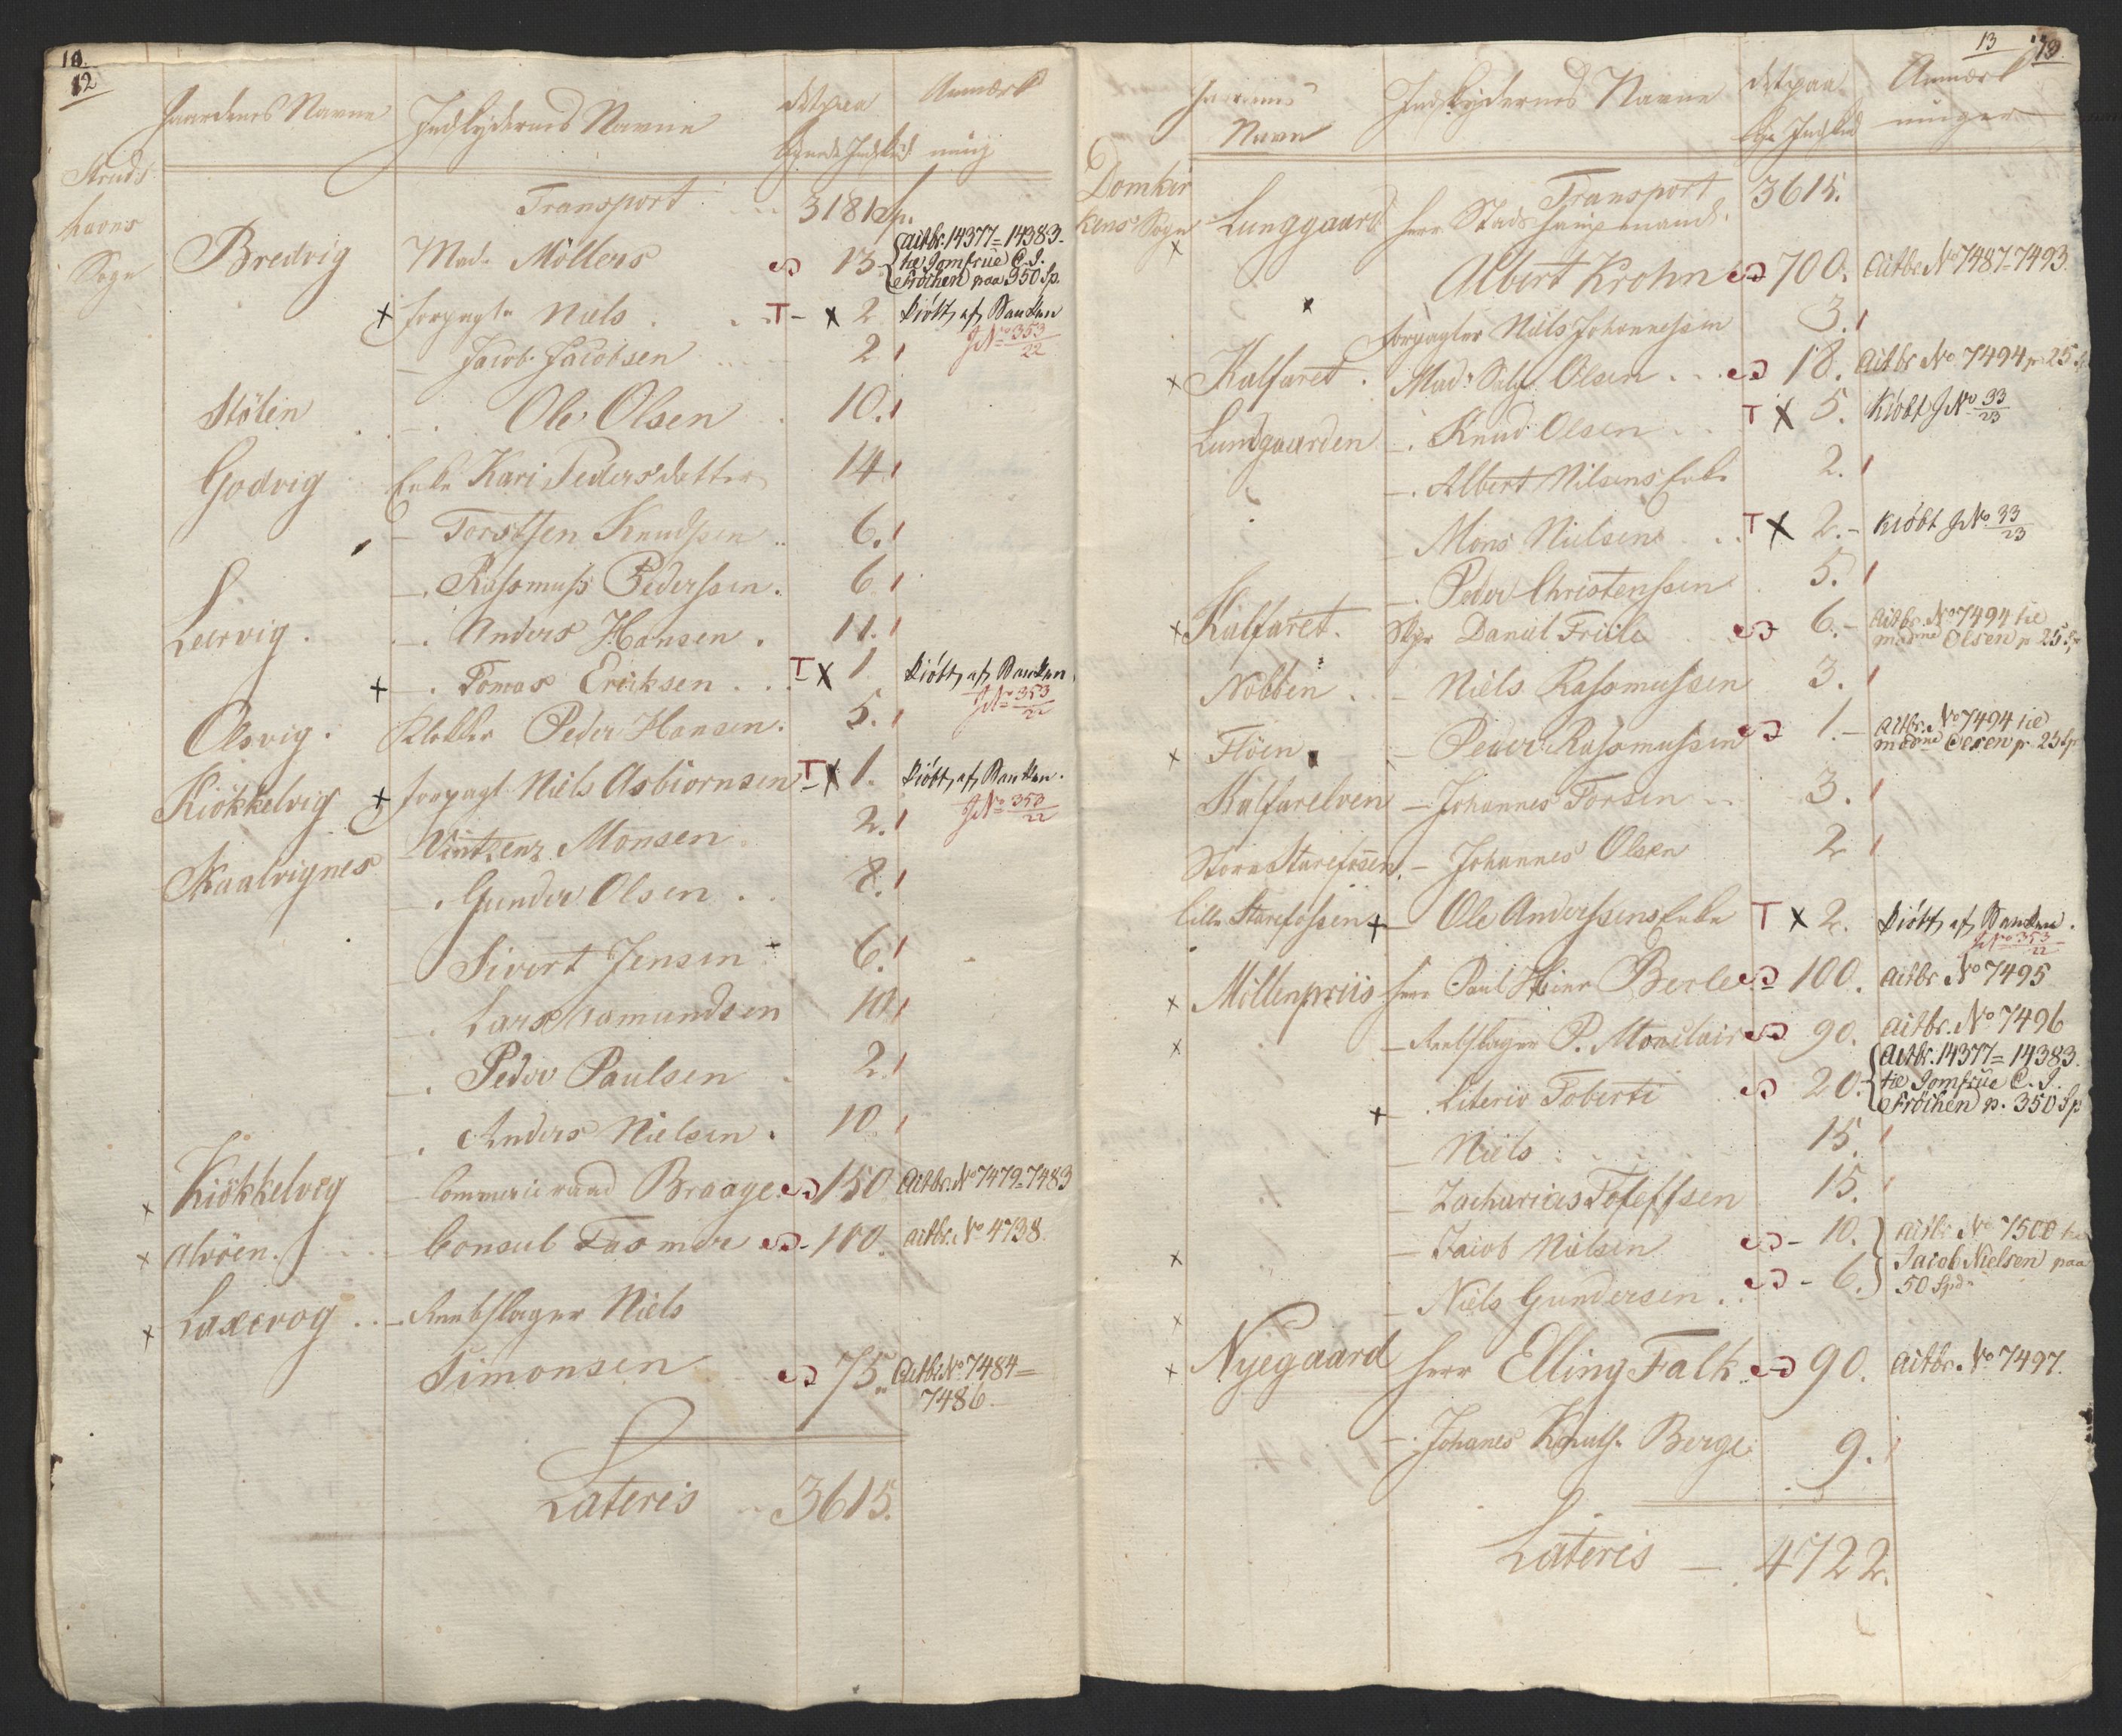 10.
12
Gaardenes Navne Indskydernes Navne Anmærk
ning
Struds
havns
Sogn
Transport 3181 sp.
Bredvig Mad. Möllers 13 Actbr. 14377=14383.
til Jomfrue C. I.
Fröchen paa 350 Sp.
x forpagtr Niels T - x 2 Kiöbt af Banken
J No 353/22
Jacob Jacobsen 2
Stölen Ole Olsen 10.
Godvig Enke Kari Pedersdatter 14
Torstsen Knudssen 6.
Rasmuss Pederssen. 6
Leervig. Anders Hansen. 11.
x Tomas Ericksen T x 1 Kiöbt af Banken.
J No 353/22
Olsvig. Klokker Peder Hansen. 5.
Kiökkelvig x forpagt Niels Asbiornsen T x 1. Kiöbt af Banken.
J No 353/22
Vintzenz Monsen 2.
Skaalvignes Gunder Olsen 8.
Sivert Jensen 6.
Lars Aamundsen 10
Peder Paulsen 2
Anders Nielsen. 10
x Kiökkelvig Commerceraad Braage 150 Actbr. No 7479-7483
x Alvöen. Consul Fasmer 100. actbr. No 4738.
x Laxevog Reebslager Niels
Simonsen 75 Actbr No 7484=
7486
Lateris 3615.
13 13.
Gaardenes
Navn Indskydernes Navne Anmærk
ninger
Domkir
kens Sogn
Transport 3615.
x Lunggaard Herr Stads Hauptmand
Albert Krohn 700. Actbr No 7487-7493.
x forpagter Niels Johannessen 3.
x Kalfaret. Mad. Salg. Olsen 18. Actbr No 7494 p 25 sp
Lundgaarden Knud Olsen T x 5. Kiöbt J No 33/23
Albert Nilsens Enke 2.
Mons Nielsen T x 2.- Kiöbt J No 33/23
Peder Christenssen 5.
x Kalfaret. Skpr Daniel Friile 6.- Actbr. No 7494 til
madme Olsen p 25 Sp
Nobben Niels Rasmussen 3.
x Flöen Peder Rasmussen 1.- Actbr. No 7494 til
madme Olsen p 25 Sp
Kalfarelven Johannes Torsen 3.
Store Starefossen. Johannes Olsen 2
Lille Starefossen x Ole Anderssens Enke T x 2. Kiöbt af Banken.
J No 353/22
x Möllenpriis herr Paul Hinr Berle 100. Actbr No 7495
x Reebslager P. Monclair 90. Actbr. No 7496
x Literio Toberti 20.- Actbr. 14377=14383.
til Jomfrue C. I.
Fröchen p. 350 Sp
Niels 15.
Zacharias Toleffsen 15.
x Jacob Nielsen 10. Actbr No 7500 til
Jacob Nielsen paa
50 Spd
x Niels Gundersen 6.
x Nyegaard herr Elling Falk 90. Actbr. No 7497.
Johanes Knuds. Berge 9.
Lateris 4722.